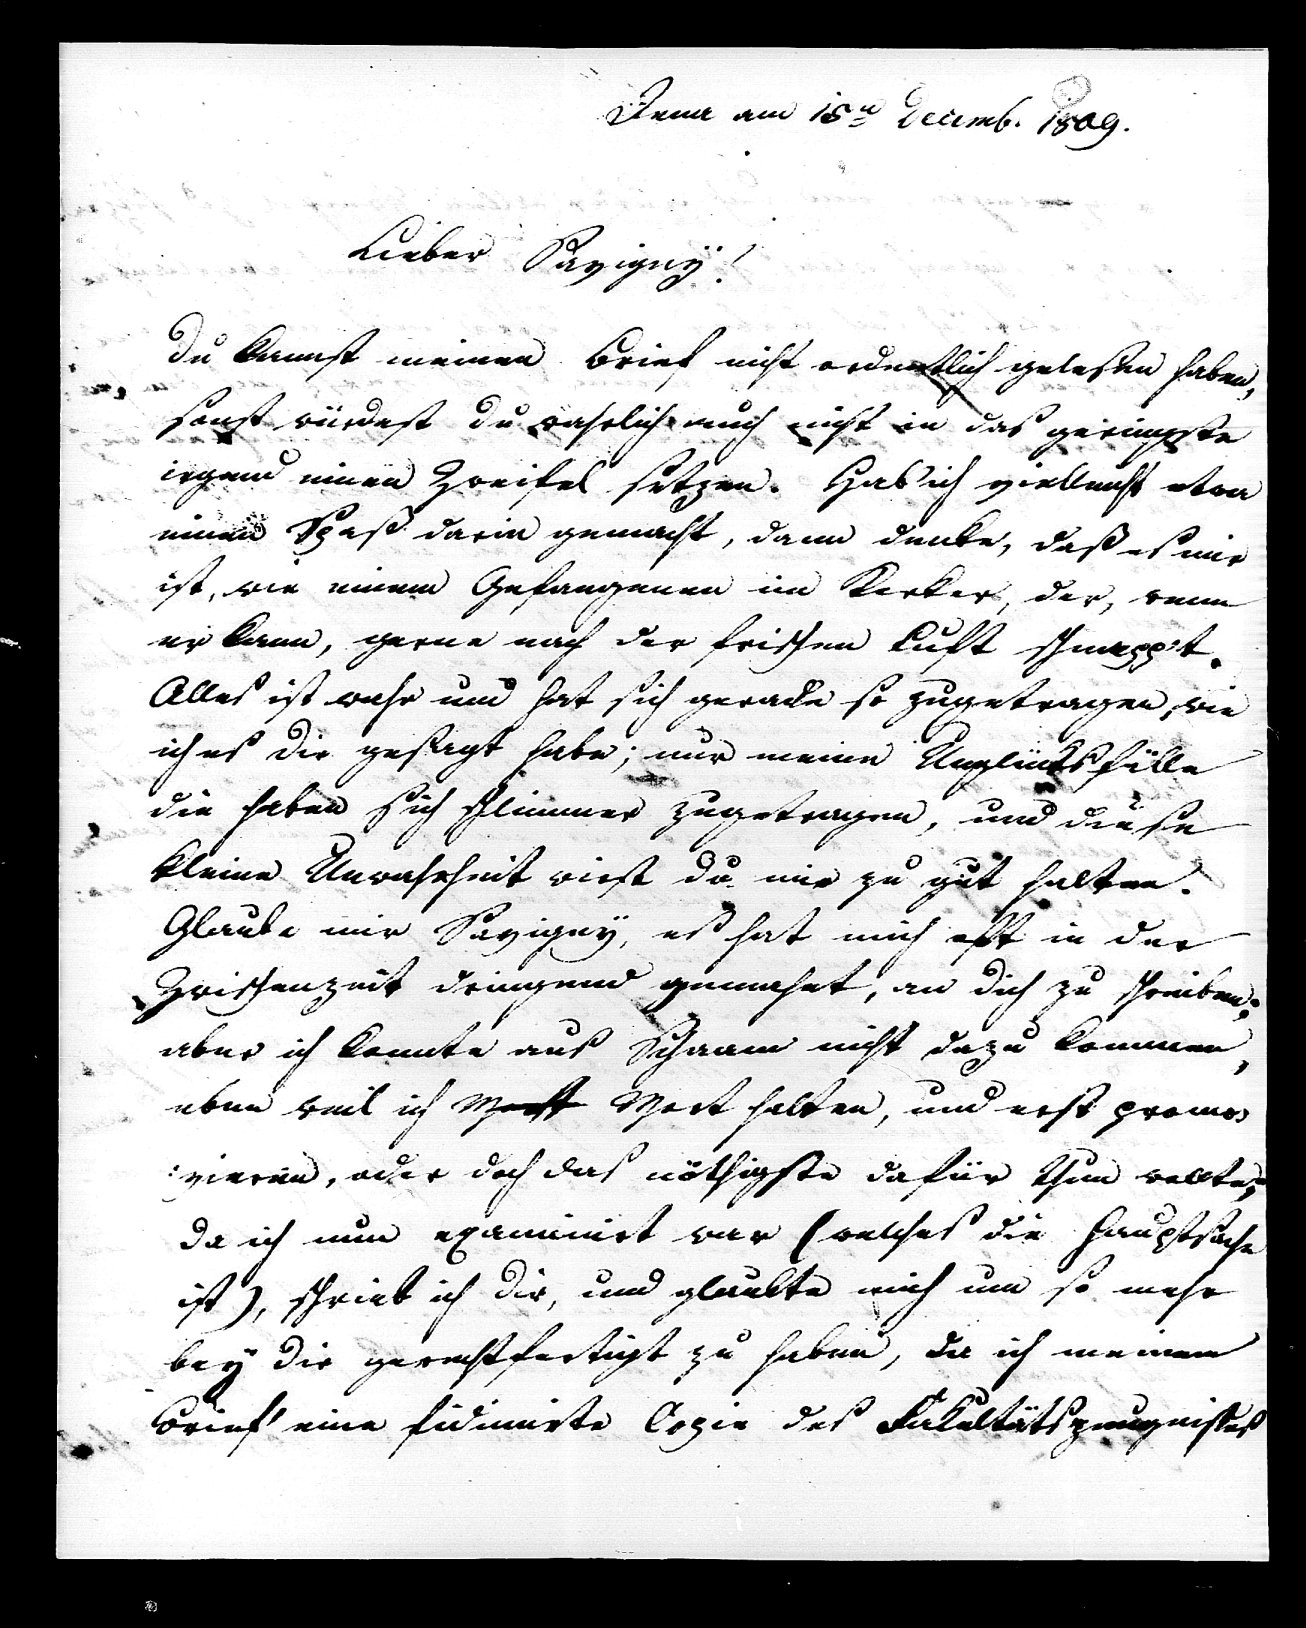 Jena am 18n Decemb. 1809.
Lieber Savigny!
Du kannst meinen Brief nicht ordentlich gelesen haben,
sonst würdest du wahrlich auch nicht in das geringste
irgend einen Zweifel setzen. Hab' ich vielleicht etwa
einen Spaß darin gemacht, dann denke, daß es mir
ist, wie einem Gefangenen im Kerker, der, wenn
er kann, gerne nach der frischen Luft schnapp't.
Alles ist wahr und hat sich gerade so zugetragen, wie
ich es dir gesagt habe; nur meine Unglücksfälle
die haben sich schlimmer zugetragen, und diese
kleine Unwahrheit wirst du mir zu gut halten.
Glaube mir Savigny, es hat mich oft in der
Zwischenzeit dringend gemahnt, an dich zu schreiben;
aber ich konnte aus Schaam nicht dazu kommen,
eben weil ich Wort halten, und erst promo=
:vieren, oder doch das nöthigste dafür thun wollte;
da ich nun examinirt war (welches die Hauptsache
ist), schrieb ich dir, und glaubte mich um so mehr
bey dir gerechtfertigt zu haben, da ich meinem
Brief eine fidimirte Copie des Fakultätszeugnisses